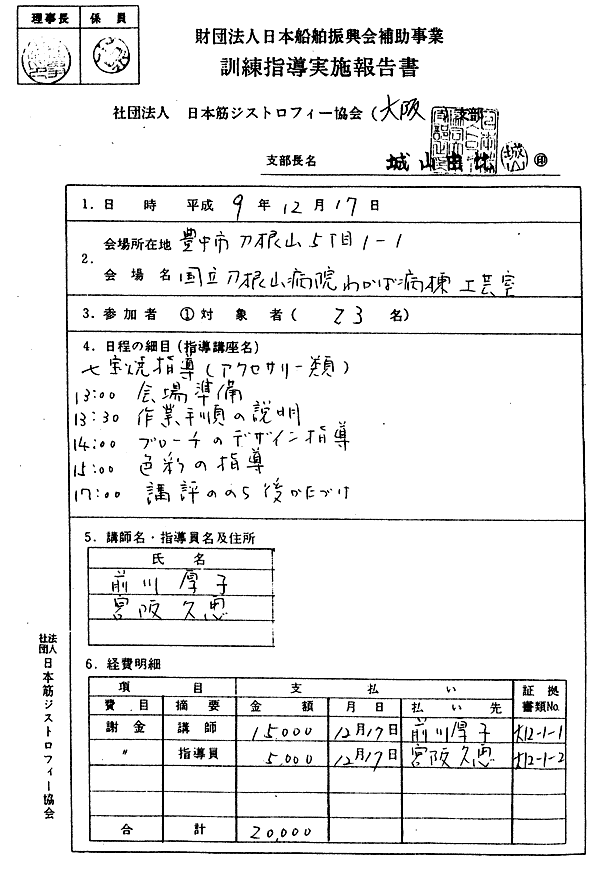 理事長 係員
財団法人日本船舶振興会補助事業
訓練指導実施報告書
社団法人 日本筋ジストロフィー協会(大阪 支部
支部長名 城山由比 ㊞
1.日 時 平成 9 年 12 月 17 日
2.
会場所在地 豊中市刀根山5丁目1-1
会場名 国立刀根山病院わかば病棟工芸室
3.参加者 ①対象者( 23 名)
4.日程の細目(指導講座名)
七宝焼指導(アクセサリー類)
13:00 会場準備
13:30 作業手順の説明
14:00 ブローチのデザイン指導
15:00 色彩の指導
17:00 講評ののち後かたづけ
5.講師名・指導員名及住所
氏名
前川厚子
宮阪久恵
6.経費明細
項目 支払い 証拠書類No.
費目 摘要 金額 月日 払い先
謝金 講師 15,000 12月17日 前川厚子 大12-1-1
〃 指導員 5,000 12月17日 宮阪久恵 大12-1-2
合計 20,000
社団法人日本筋ジストロフィー協会